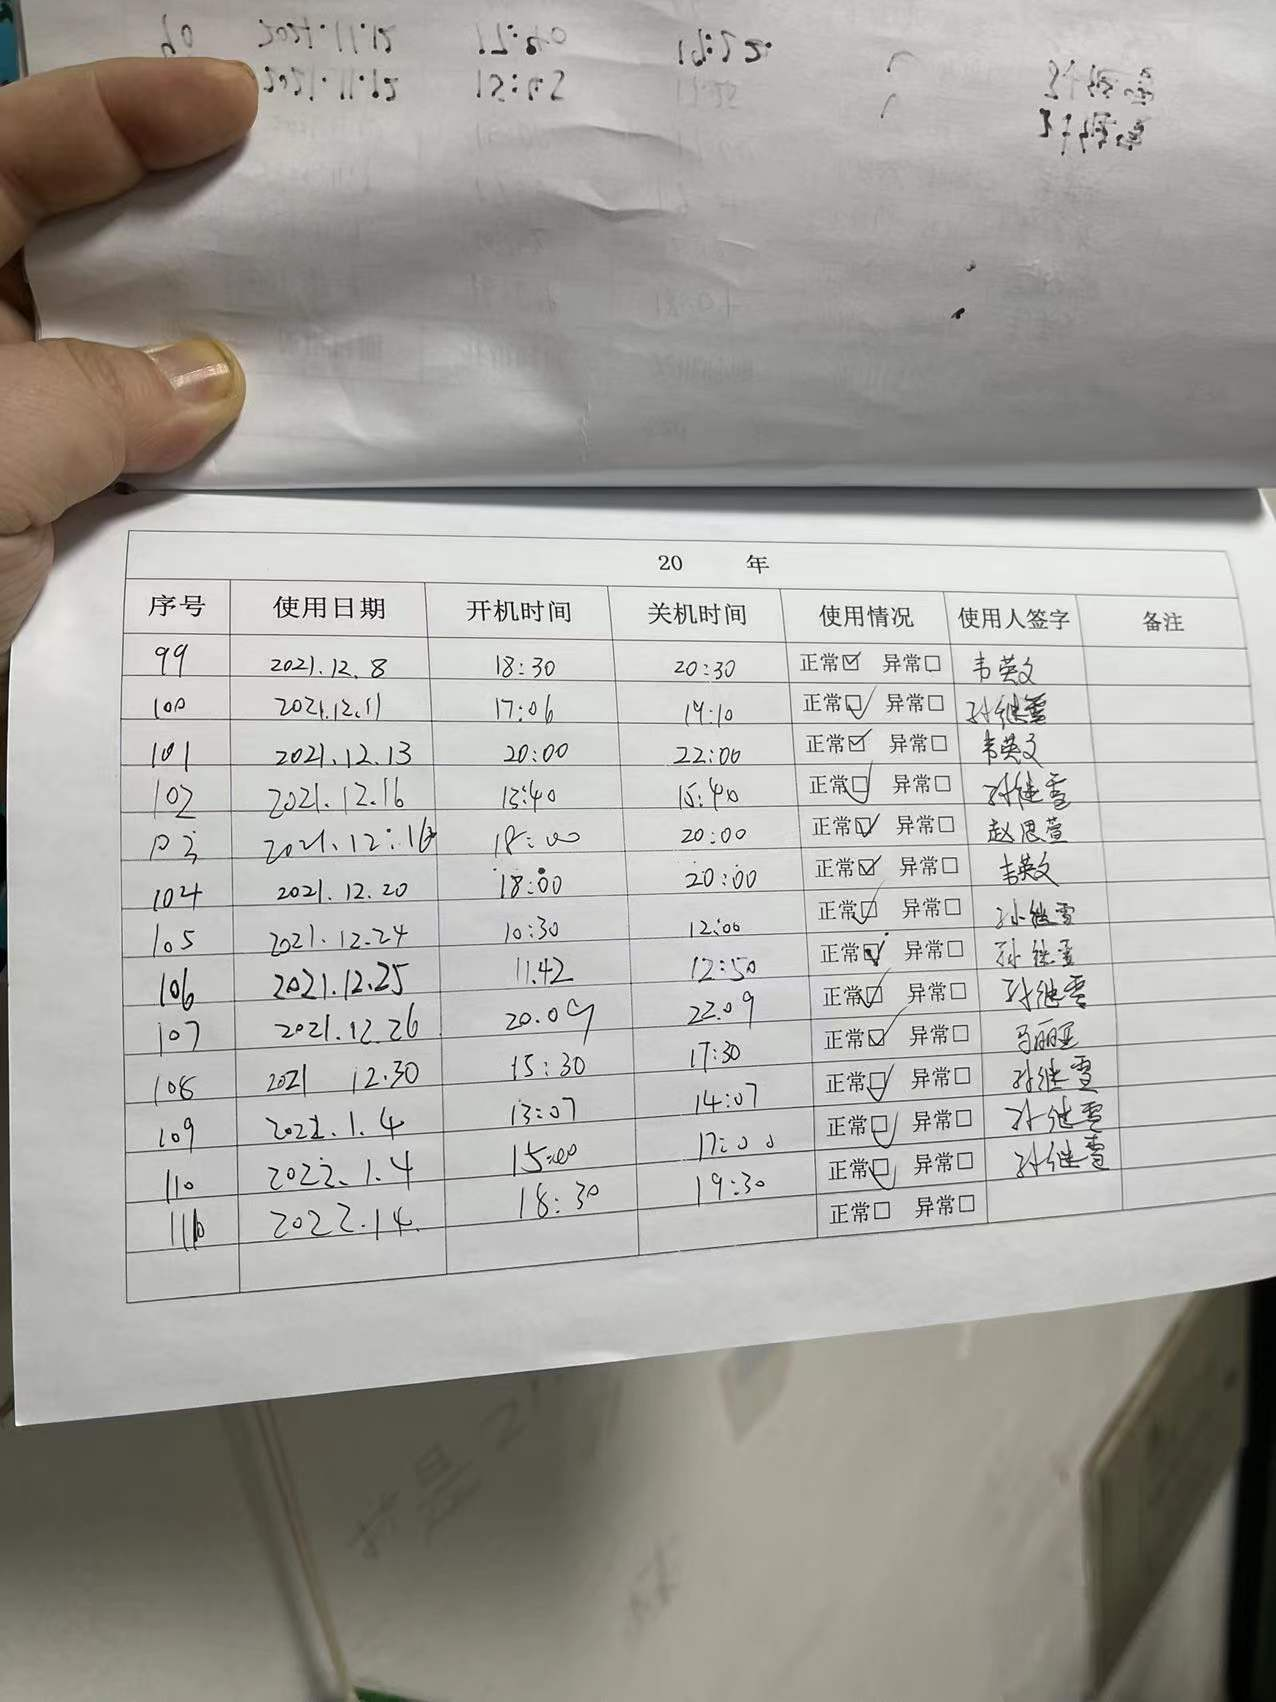 20 年
序号 使用日期 开机时间 关机时间 使用情况 使用人签字 备注
99 2021.12.8 18:30 20:30 正常☑ 异常□ 韦英文
100 2021.12.11 17:06 19:10 正常☑ 异常□ 孙继雪
101 2021.12.13 20:00 22:00 正常☑ 异常□ 韦英文
102 2021.12.16 13:40 15:40 正常☑ 异常□ 孙继雪
103 2021.12.16 18:00 20:00 正常☑ 异常□ 赵思萱
104 2021.12.20 18:00 20:00 正常☑ 异常□ 韦英文
105 2021.12.24 10:30 12:00 正常☑ 异常□ 孙继雪
106 2021.12.25 11.42 12:50 正常☑ 异常□ 孙继雪
107 2021.12.26 20.09 22.09 正常☑ 异常□ 孙继雪
108 2021 12.30 15:30 17:30 正常☑ 异常□ 马丽亚
109 2022.1.4 13:07 14:07 正常☑ 异常□ 孙继雪
110 2022.1.4 15:00 17:00 正常☑ 异常□ 孙继雪
111 2022.14. 18:30 19:30 正常☑ 异常□ 孙继雪
正常□ 异常□